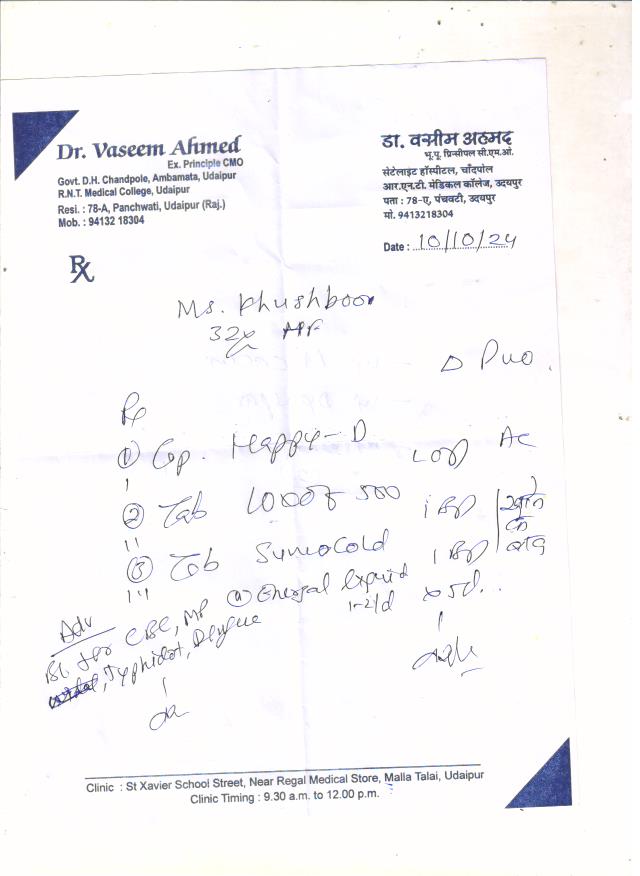 Dr. Vaseem Ahmed
Ex. Principle CMO
Govt. D.H. Chandpole, Ambamata, Udaipur
R.N.T. Medical College, Udaipur
Resi. : 78-A, Panchwati, Udaipur (Raj.)
Mob. : 94132 18304
डा. वसीम अहमद
भू.पू. प्रिन्सीपल सी.एम.ओ.
सेटेलाइट हॉस्पीटल, चाँदपोल
आर.एन.टी. मेडिकल कॉलेज, उदयपुर
पता : 78-ए, पंचवटी, उदयपुर
मो. 9413218304
Date : 10/10/24
Rx
Ms. Khushboo
32y
Δ PUO.
Rx
① Cap. Happy-D AC
② Tab 500 1 BD
③ Tab Sumocold 1 BD
④ x 5d.
Adv
Bl. for CBC, MP
Typhidot, Dengue
Clinic : St Xavier School Street, Near Regal Medical Store, Malla Talai, Udaipur
Clinic Timing : 9.30 a.m. to 12.00 p.m.